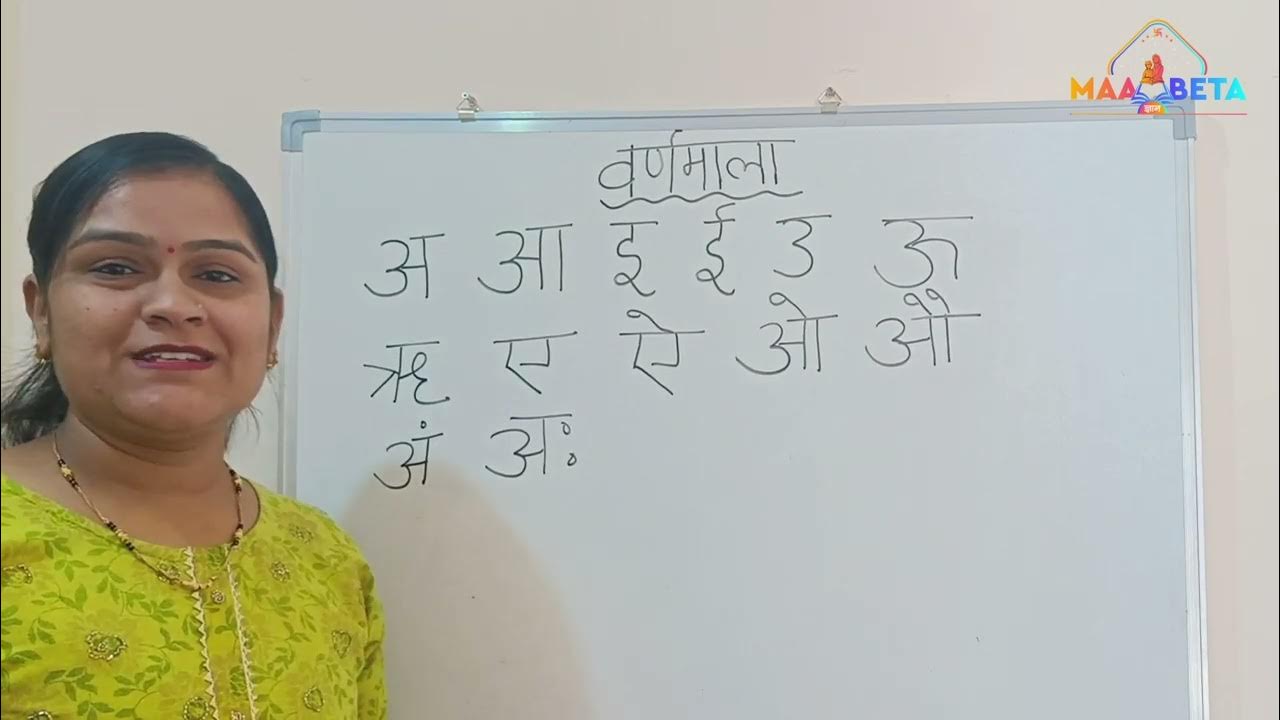 MAA BETA
ज्ञान
वर्णमाला
अ आ इ ई उ ऊ
ऋ ए ऐ ओ औ
अं अः